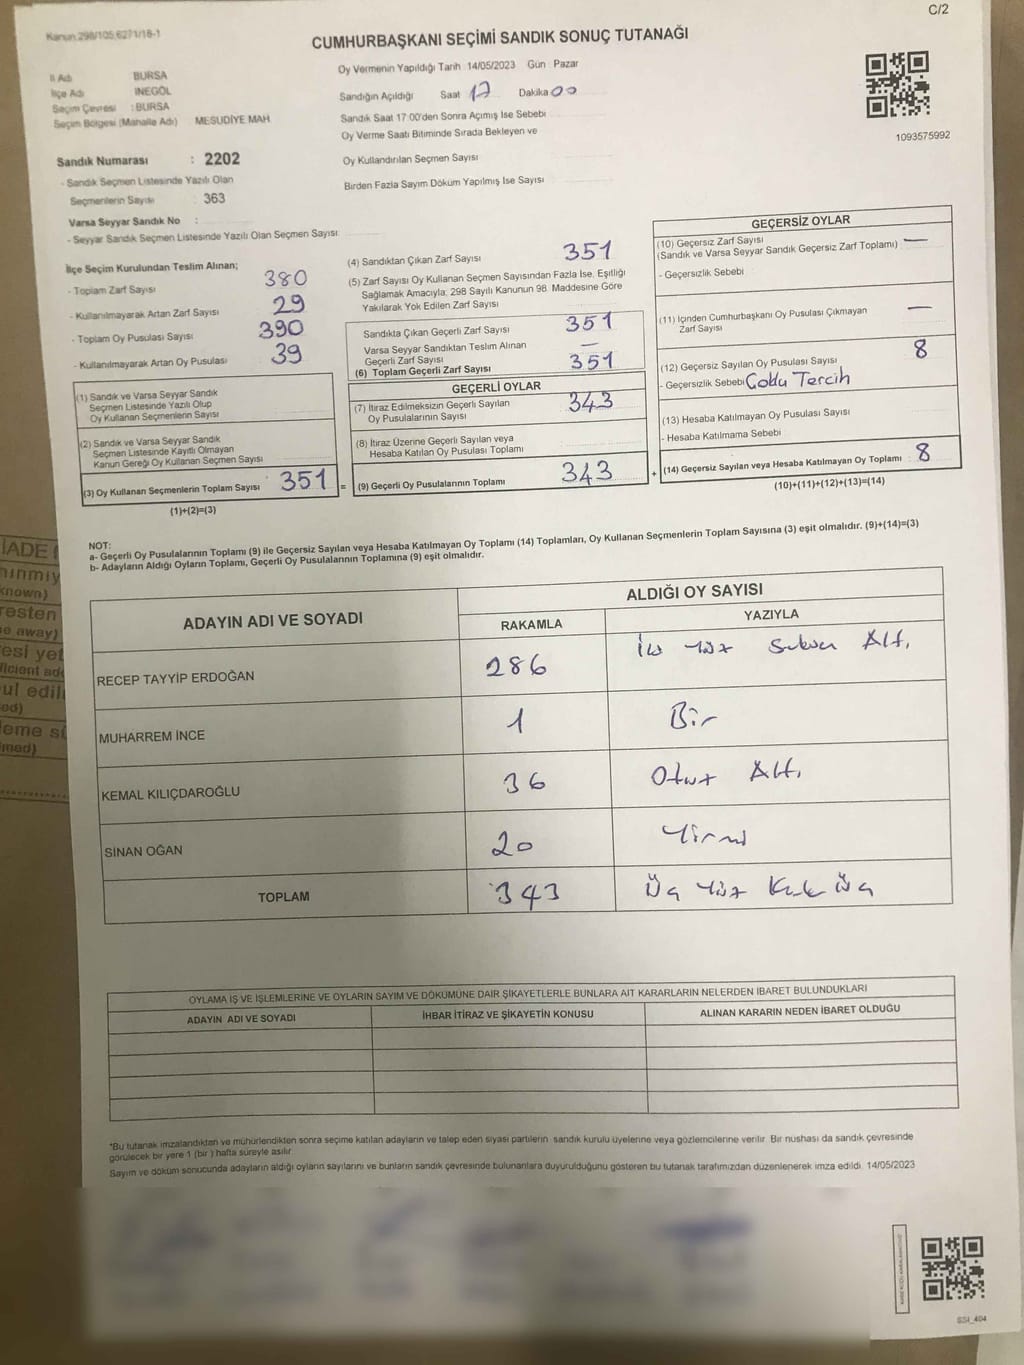 C/2
Kanun 298/105,6271/18-1
CUMHURBAŞKANI SEÇİMİ SANDIK SONUÇ TUTANAĞI
İl Adı BURSA
İlçe Adı İNEGÖL
Seçim Çevresi : BURSA
Seçim Bölgesi (Mahalle Adı) MESUDİYE MAH
Sandık Numarası : 2202
- Sandık Seçmen Listesinde Yazılı Olan
Seçmenlerin Sayısı 363
Varsa Seyyar Sandık No :
- Seyyar Sandık Seçmen Listesinde Yazılı Olan Seçmen Sayısı:
Oy Vermenin Yapıldığı Tarih 14/05/2023 Gün : Pazar
Sandığın Açıldığı Saat 17 Dakika 00
Sandık Saat 17:00'den Sonra Açımış İse Sebebi
Oy Verme Saati Bitiminde Sırada Bekleyen ve
Oy Kullandırılan Seçmen Sayısı
Birden Fazla Sayım Döküm Yapılmış İse Sayısı
1093575992
İlçe Seçim Kurulundan Teslim Alınan;
- Toplam Zarf Sayısı 380
- Kullanılmayarak Artan Zarf Sayısı 29
- Toplam Oy Pusulası Sayısı 390
- Kullanılmayarak Artan Oy Pusulası 39
(1) Sandık ve Varsa Seyyar Sandık
Seçmen Listesinde Yazılı Olup
Oy Kullanan Seçmenlerin Sayısı
(2) Sandık ve Varsa Seyyar Sandık
Seçmen Listesinde Kayıtlı Olmayan
Kanun Gereği Oy Kullanan Seçmen Sayısı
(3) Oy Kullanan Seçmenlerin Toplam Sayısı 351 =
(1)+(2)=(3)
(4) Sandıktan Çıkan Zarf Sayısı 351
(5) Zarf Sayısı Oy Kullanan Seçmen Sayısından Fazla İse, Eşitliği
Sağlamak Amacıyla; 298 Sayılı Kanunun 98. Maddesine Göre
Yakılarak Yok Edilen Zarf Sayısı
Sandıkta Çıkan Geçerli Zarf Sayısı 351
Varsa Seyyar Sandıktan Teslim Alınan
Geçerli Zarf Sayısı —
(6) Toplam Geçerli Zarf Sayısı 351
GEÇERLİ OYLAR
(7) İtiraz Edilmeksizin Geçerli Sayılan
Oy Pusulalarının Sayısı 343
(8) İtiraz Üzerine Geçerli Sayılan veya
Hesaba Katılan Oy Pusulası Toplamı
(9) Geçerli Oy Pusulalarının Toplamı 343 +
GEÇERSİZ OYLAR
(10) Geçersiz Zarf Sayısı
(Sandık ve Varsa Seyyar Sandık Geçersiz Zarf Toplamı) —
- Geçersizlik Sebebi
(11) İçinden Cumhurbaşkanı Oy Pusulası Çıkmayan
Zarf Sayısı —
(12) Geçersiz Sayılan Oy Pusulası Sayısı 8
- Geçersizlik Sebebi Çoklu Tercih
(13) Hesaba Katılmayan Oy Pusulası Sayısı
- Hesaba Katılmama Sebebi
(14) Geçersiz Sayılan veya Hesaba Katılmayan Oy Toplamı : 8
(10)+(11)+(12)+(13)=(14)
NOT:
a- Geçerli Oy Pusulalarının Toplamı (9) ile Geçersiz Sayılan veya Hesaba Katılmayan Oy Toplamı (14) Toplamları, Oy Kullanan Seçmenlerin Toplam Sayısına (3) eşit olmalıdır. (9)+(14)=(3)
b- Adayların Aldığı Oyların Toplamı, Geçerli Oy Pusulalarının Toplamına (9) eşit olmalıdır.
ADAYIN ADI VE SOYADI ALDIĞI OY SAYISI
RAKAMLA YAZIYLA
RECEP TAYYİP ERDOĞAN 286 İki Yüz Seksen Altı
MUHARREM İNCE 1 Bir
KEMAL KILIÇDAROĞLU 36 Otuz Altı
SİNAN OĞAN 20 Yirmi
TOPLAM 343 Üç Yüz Kırk Üç
OYLAMA İŞ VE İŞLEMLERİNE VE OYLARIN SAYIM VE DÖKÜMÜNE DAİR ŞİKAYETLERLE BUNLARA AİT KARARLARIN NELERDEN İBARET BULUNDUKLARI
ADAYIN ADI VE SOYADI İHBAR İTİRAZ VE ŞİKAYETİN KONUSU ALINAN KARARIN NEDEN İBARET OLDUĞU
*Bu tutanak imzalandıktan ve mühürlendikten sonra seçime katılan adayların ve talep eden siyasi partilerin sandık kurulu üyelerine veya gözlemcilerine verilir. Bir nüshası da sandık çevresinde
görülecek bir yere 1 (bir ) hafta süreyle asılır.
Sayım ve döküm sonucunda adayların aldığı oyların sayılarını ve bunların sandık çevresinde bulunanlara duyurulduğunu gösteren bu tutanak tarafımızdan düzenlenerek imza edildi. 14/05/2023
SSI_404
İADE
known)
resten
e away)
esi yet
ficient ad
ul edil
ed)
leme s
med)